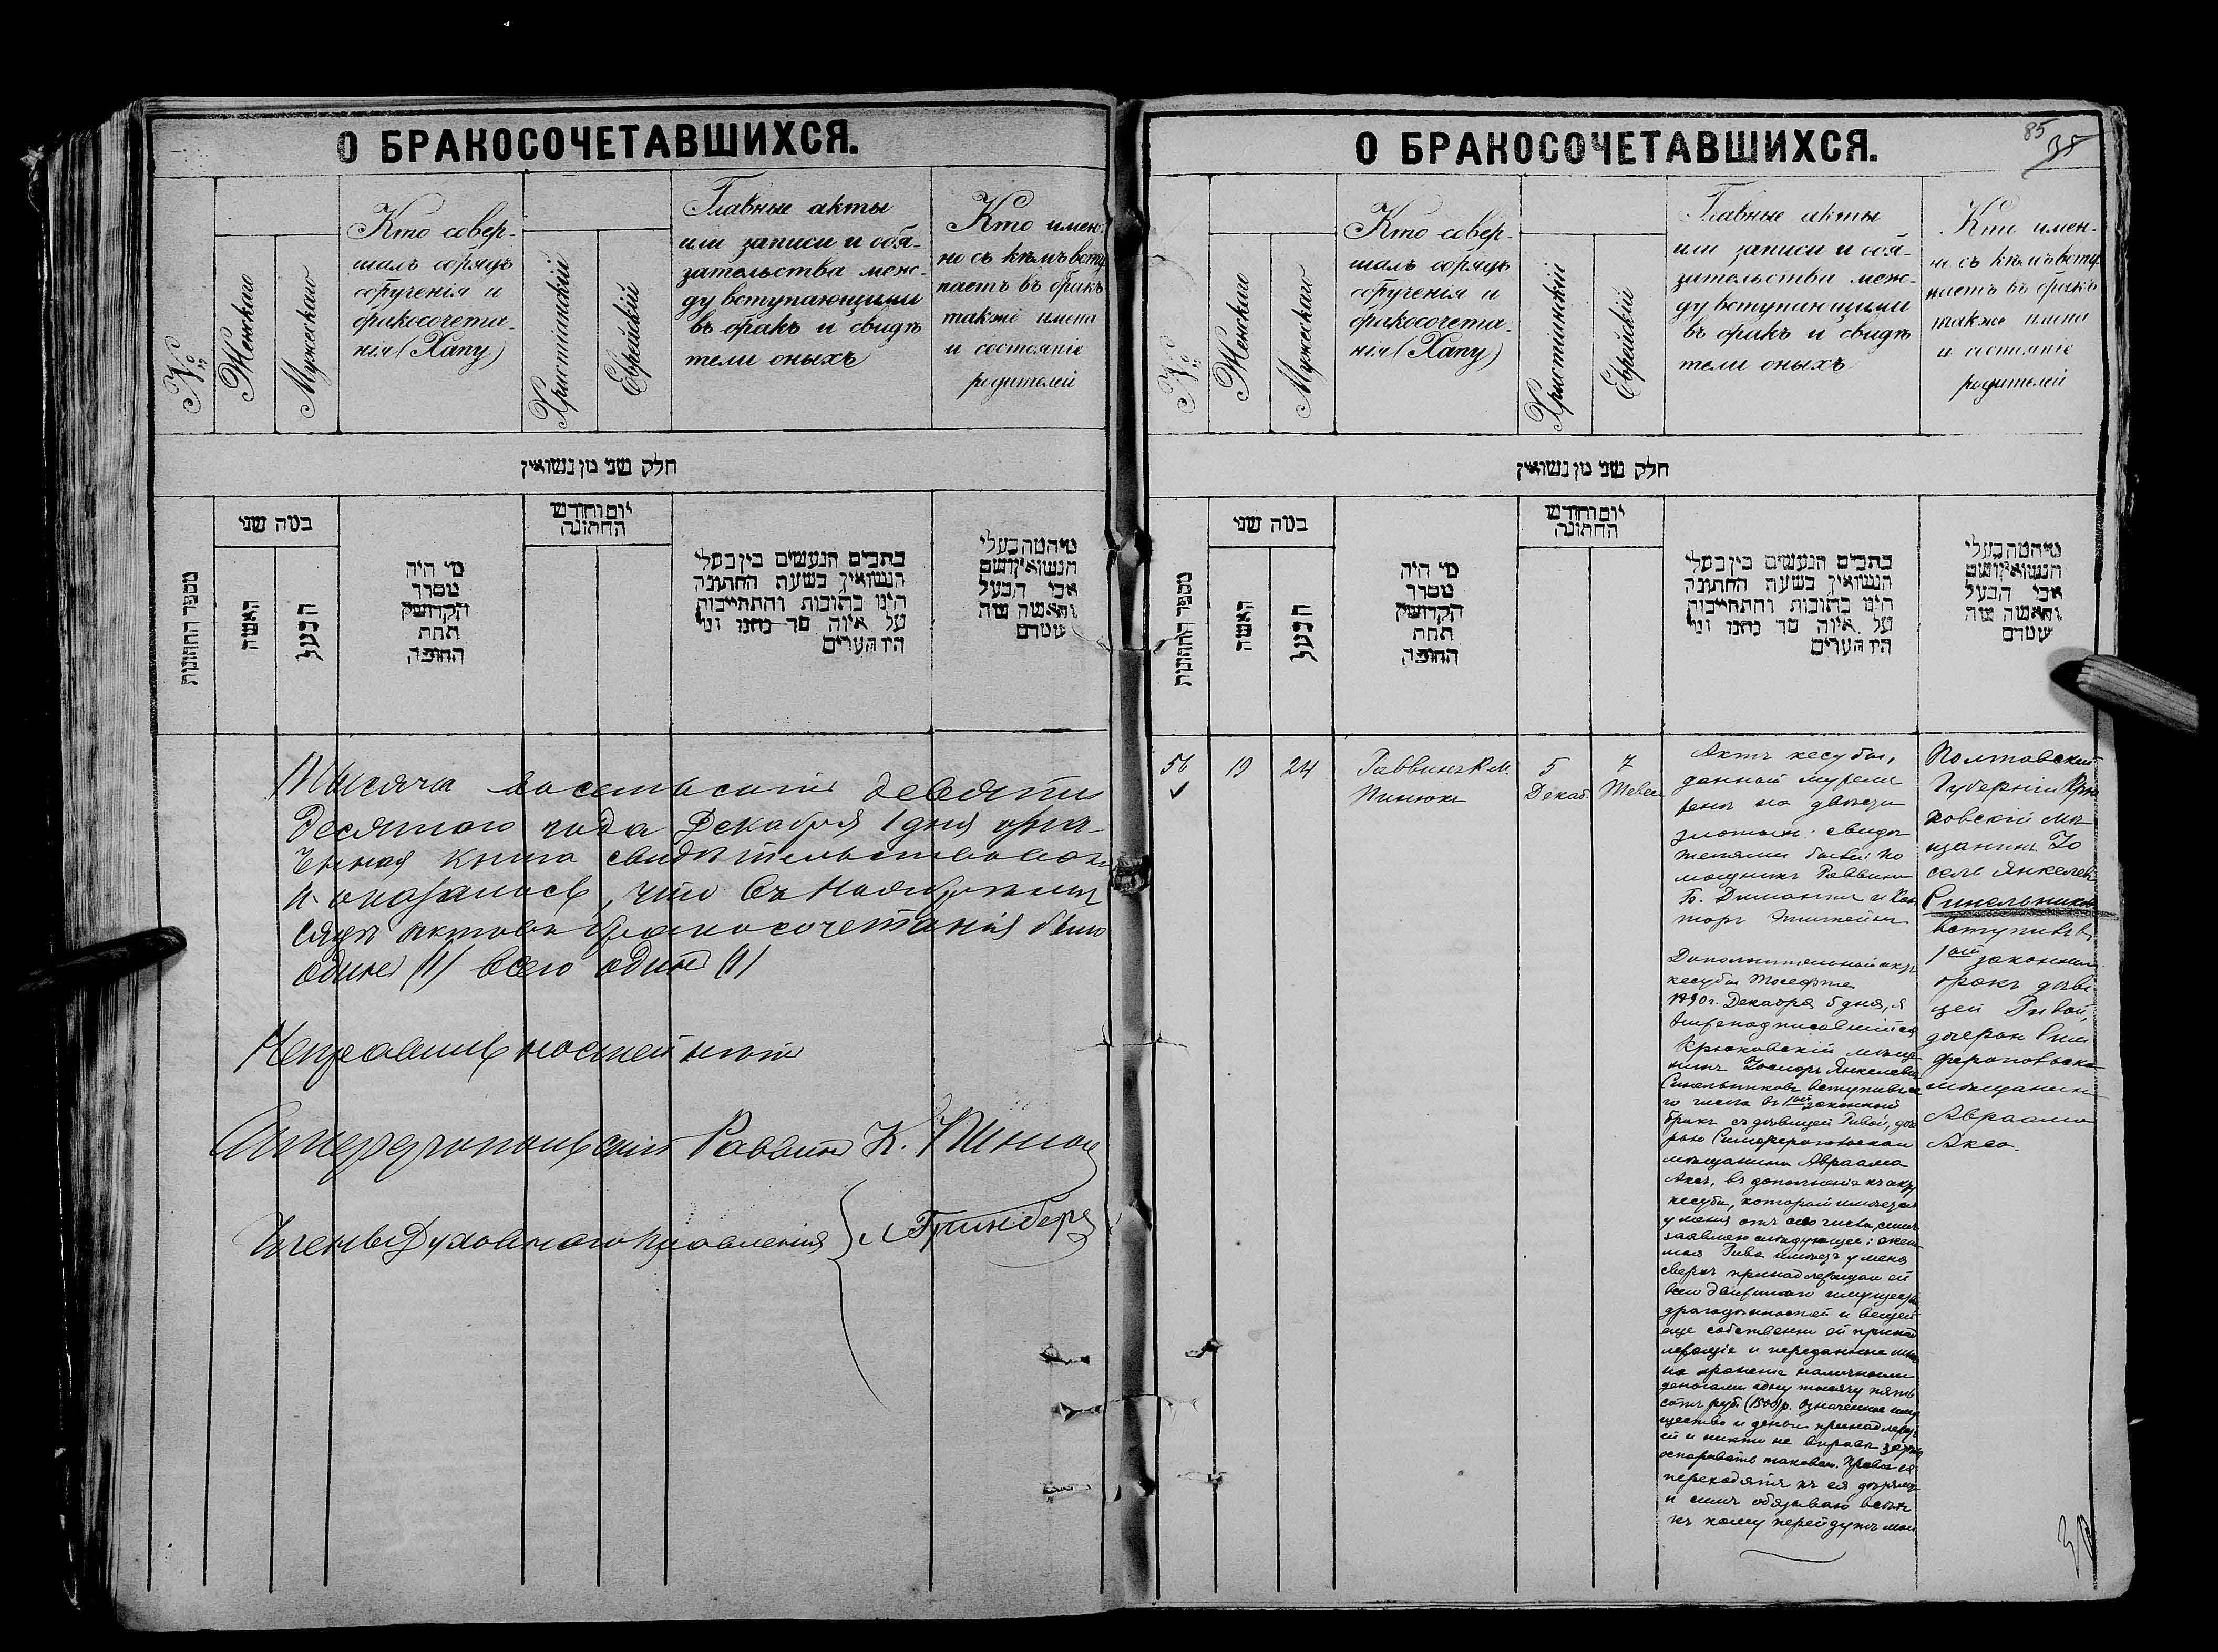 О БРАКОСОЧЕТАВШИХСЯ.
№
Женскаго
Мужескаго
Кто совер-
шалъ обрядъ
обрученія и
бракосочета-
нія (Хапу)
Христіанскій
Еврейскій
Главные акты
или записи и обя-
зательства меж-
ду вступающими
въ бракъ и свидѣ
тели оныхъ
Кто имен-
но съ кѣмъ всту
паетъ въ бракъ
также имена
и состояніе
родителей
חלק שני מן נשואין
מספר החתונות
כמה שני
האשה
הבעל
מי היה
מסדר
הקדושין
תחת
החופה
יום וחודש
החתונה
כתבים הנעשים בין בעלי
הנשואין בשעת החתונה
היינו כתובות והתחייבות
על איזה סך נתנו ומי
היו העדים
מי המה בעלי
הנשואין ושם
אבי הבעל
והאשה
Тысяча восемьсотъ девяно
десятаго года Декабря 1 дня
книга свидѣтельствована
и оказалось, что въ Ноябрѣ мѣ
сяцѣ актовъ бракосочетанія было
одинъ (1) всего одинъ (1)
Неправильностей нѣтъ
Симферопольскій Раввинъ К. Пинюхъ
Члены Духовнаго Правленія } Гринбергъ
О БРАКОСОЧЕТАВШИХСЯ.
85
35
№
Женскаго
Мужескаго
Кто совер-
шалъ обрядъ
обрученія и
бракосочета-
нія (Хапу)
Христіанскій
Еврейскій
Главные акты
или записи и обя-
зательства меж-
ду вступающими
въ бракъ и свидѣ
тели оныхъ
Кто имен-
но съ кѣмъ всту
паетъ въ бракъ
также имена
и состояніе
родителей
חלק שני מן נשואין
מספר החתונות
כמה שני
האשה
הבעל
מי היה
מסדר
הקדושין
תחת
החופה
יום וחודש
החתונה
כתבים הנעשים בין בעלי
הנשואין בשעת החתונה
היינו כתובות והתחייבות
על איזה סך נתנו ומי
היו העדים
מי המה בעלי
הנשואין ושם
אבי הבעל
והאשה
56
19
24
Раввинъ К. М.
Пинюхъ
5
Декаб.
7
Тевес
Актъ кесубы,
данный
на двѣсти
злотыхъ: свидѣ
телями были по
мощникъ Раввина
Б. Димантъ и Кан
торъ Эпштейнъ
Дополнительный актъ
кесубы Тосефте
1890 г. Декабря 5 дня, я
нижеподписавшійся
Крюковскій мѣща
нинъ Іосифъ Янкелевъ
Синельниковъ вступивъ се
го числа въ 1ый законный
бракъ съ дѣвицей Ривой, доче
рью Симферопольскаго
мѣщанина Авраама
Аксъ, въ дополненіе къ акту
кесубы, который имѣется
у меня отъ сего числа, симъ
заявляю слѣдующее: жена
моя Рива имѣетъ у меня
сверхъ принадлежащаго ей
всего движимаго имущества
драгоцѣнностей и вещей
еще собственно ей принад
лежащіе и переданные мнѣ
на храненіе наличными
деньгами одну тысячу пять
сотъ руб. (1500) р. Означенное иму
щество и деньги принадлежатъ
ей и никто не вправѣ
оспаривать таковыя. Права ея
переходятъ къ ея
и симъ обязываю всѣхъ
къ кому перейдутъ мои
Полтавской
Губерніи Крю
ковскій мѣ
щанинъ Іо
сель Янкелевъ
Синельниковъ
вступилъ въ
1ый законный
бракъ съ дѣви
цей Ривой,
дочерью Сим
феропольскаго
мѣщанина
Авраама
Аксъ.